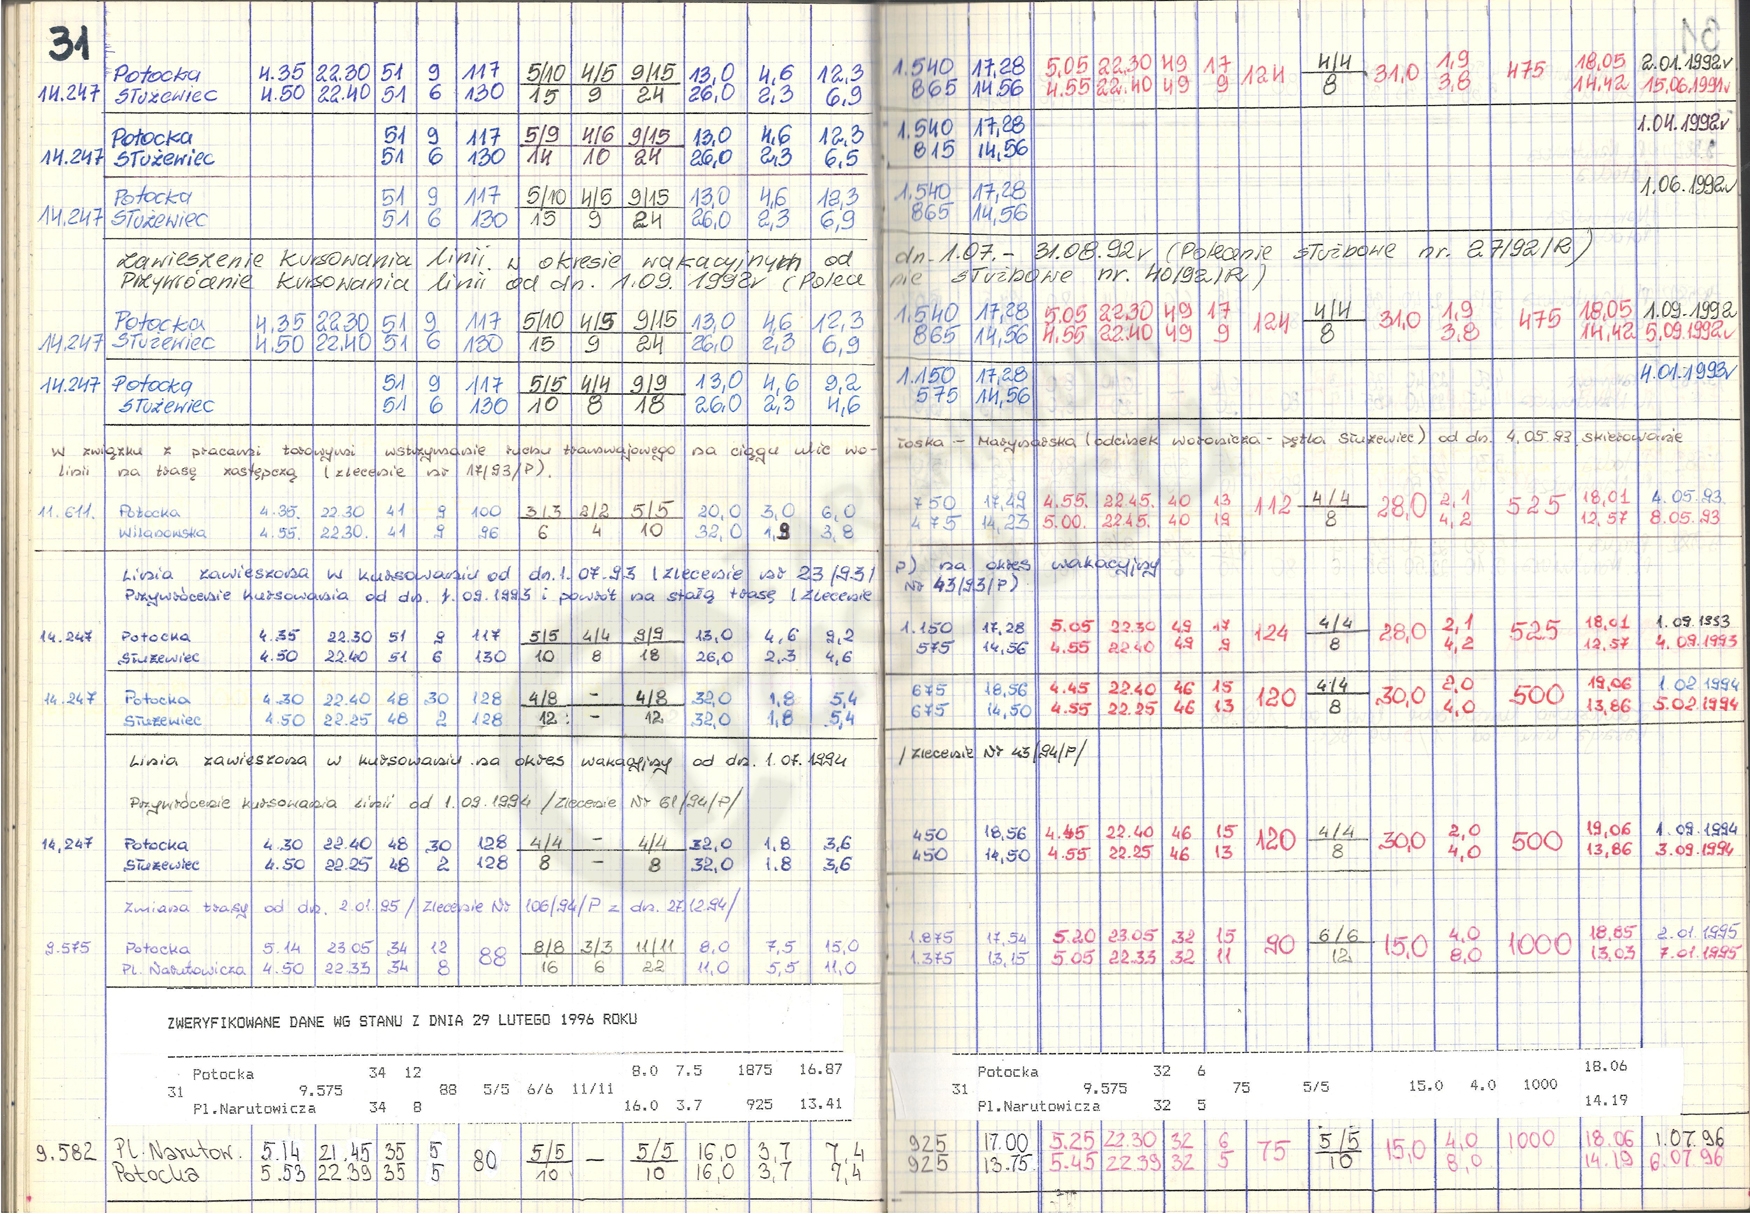 31
Potocka 4.35 22.30 51 9 117 5/10 4/5 9/15 13,0 4,6 12,3 1.540 17,28 5.05 22.30 49 17 124 4/4 31,0 1,9 475 18,05 2.01.1992r
14.247 Służewiec 4.50 22.40 51 6 130 15 9 24 26,0 2,3 6,9 865 14,56 4.55 22.40 49 9 8 3,8 14,42 15.06.1991r
Potocka 51 9 117 5/9 4/6 9/15 13,0 4,6 12,3 1.540 17,28 1.04.1992r
14.247 Służewiec 51 6 130 14 10 24 26,0 2,3 6,5 815 14,56
Potocka 51 9 117 5/10 4/5 9/15 13,0 4,6 12,3 1.540 17,28 1.06.1992r
14.247 Służewiec 51 6 130 15 9 24 26,0 2,3 6,9 865 14,56
Zawieszenie kursowania linii w okresie wakacyjnym od dn. 1.07. - 31.08.92r (Polecenie służbowe nr. 27/92/R)
Przywrócenie kursowania linii od dn. 1.09. 1992r (Polecenie służbowe nr. 40/92/R)
Potocka 4.35 22.30 51 9 117 5/10 4/5 9/15 13,0 4,6 12,3 1.540 17,28 5.05 22.30 49 17 124 4/4 31,0 1,9 475 18,05 1.09.1992
14.247 Służewiec 4.50 22.40 51 6 130 15 9 24 26,0 2,3 6,9 865 14,56 4.55 22.40 49 9 8 3,8 14,42 5.09.1992r
14.247 Potocka 51 9 117 5/5 4/4 9/9 13,0 4,6 9,2 1.150 17,28 4.01.1993r
Służewiec 51 6 130 10 8 18 26,0 2,3 4,6 575 14,56
W związku z pracami torowymi wstrzymanie ruchu tramwajowego na ciągu ulic Wołoska - Marynarska (odcinek Woronicza - pętla Służewiec) od dn. 4.05.93 skierowanie
linii na trasę zastępczą (zlecenie nr 17/93/P).
11.611. Potocka 4.35. 22.30 41 9 100 3/3 2/2 5/5 20,0 3,0 6,0 750 17,49 4.55. 22.45. 40 13 112 4/4 28,0 2,1 525 18,01 4.05.93.
Wilanowska 4.55. 22.30. 41 9 96 6 4 10 32,0 1,9 3,8 475 14,23 5.00. 22.45. 40 19 8 4,2 12,57 8.05.93.
Linia zawieszona w kursowaniu od dn. 1.07.93 (zlecenie nr 23/93/P) na okres wakacyjny
Przywrócenie kursowania od dn. 1.09.1993 i powrót na stałą trasę (zlecenie Nr 43/93/P)
14.247 Potocka 4.35 22.30 51 9 117 5/5 4/4 9/9 13,0 4,6 9,2 1.150 17,28 5.05 22.30 49 17 124 4/4 28,0 2,1 525 18,01 1.09.1993
Służewiec 4.50 22.40 51 6 130 10 8 18 26,0 2,3 4,6 575 14,56 4.55 22.40 49 9 8 4,2 12,57 4.09.1993
14.247 Potocka 4.30 22.40 48 30 128 4/8 - 4/8 32,0 1,8 5,4 675 18,56 4.45 22.40 46 15 120 4/4 30,0 2,0 500 19,06 1.02 1994
Służewiec 4.50 22.25 48 2 128 12 - 12 32,0 1,8 5,4 675 14,50 4.55 22.25 46 13 8 4,0 13,86 5.02.1994
Linia zawieszona w kursowaniu na okres wakacyjny od dn. 1.07.1994 /Zlecenie Nr 43/94/P/
Przywrócenie kursowania linii od 1.09.1994 /Zlecenie Nr 61/94/P/
14,247 Potocka 4.30 22.40 48 30 128 4/4 - 4/4 32,0 1,8 3,6 450 18,56 4.45 22.40 46 15 120 4/4 30,0 2,0 500 19,06 1.09.1994
Służewiec 4.50 22.25 48 2 128 8 - 8 32,0 1.8 3,6 450 14,50 4.55 22.25 46 13 8 4,0 13,86 3.09.1994
Zmiana trasy od dn. 2.01.95 /Zlecenie Nr 106/94/P z dn. 27.12.94/
9.575 Potocka 5.14 23.05 34 12 88 8/8 3/3 11/11 8,0 7,5 15,0 1.875 17,54 5.20 23.05 32 15 90 6/6 15,0 4,0 1000 18,85 2.01.1995
Pl. Narutowicza 4.50 22.33 34 8 16 6 22 11,0 5,5 11,0 1.375 13,15 5.05 22.33 32 11 12 8,0 13,03 7.01.1995
ZWERYFIKOWANE DANE WG STANU Z DNIA 29 LUTEGO 1996 ROKU
Potocka 34 12 8.0 7.5 1875 16.87 Potocka 32 6 18.06
31 9.575 88 5/5 6/6 11/11 31 9.575 75 5/5 15.0 4.0 1000
Pl.Narutowicza 34 8 16.0 3.7 925 13.41 Pl.Narutowicza 32 5 14.19
9.582 Pl. Narutow. 5.14 21.45 35 5 80 5/5 - 5/5 16,0 3,7 7,4 925 17.00 5.25 22.30 32 6 75 5/5 15,0 4,0 1000 18.06 1.07.96
Potocka 5.53 22.39 35 5 10 10 16,0 3,7 7,4 925 13.75 5.45 22.39 32 5 10 8,0 14.19 6.07.96